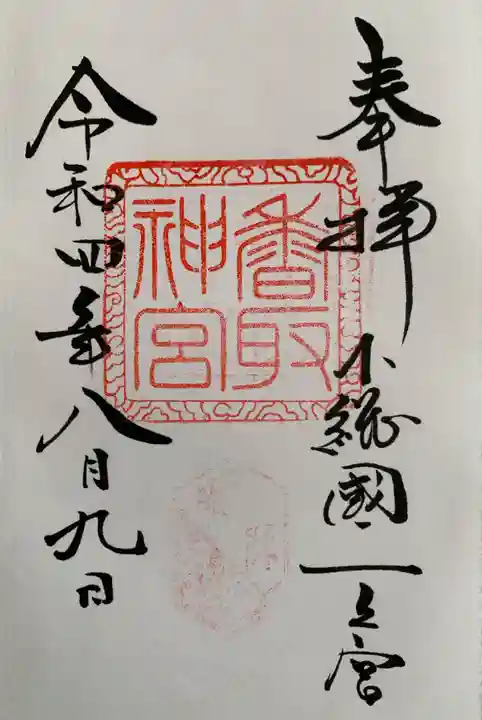 奉拝
下総國一之宮
香取
神宮
令和四年八月九日